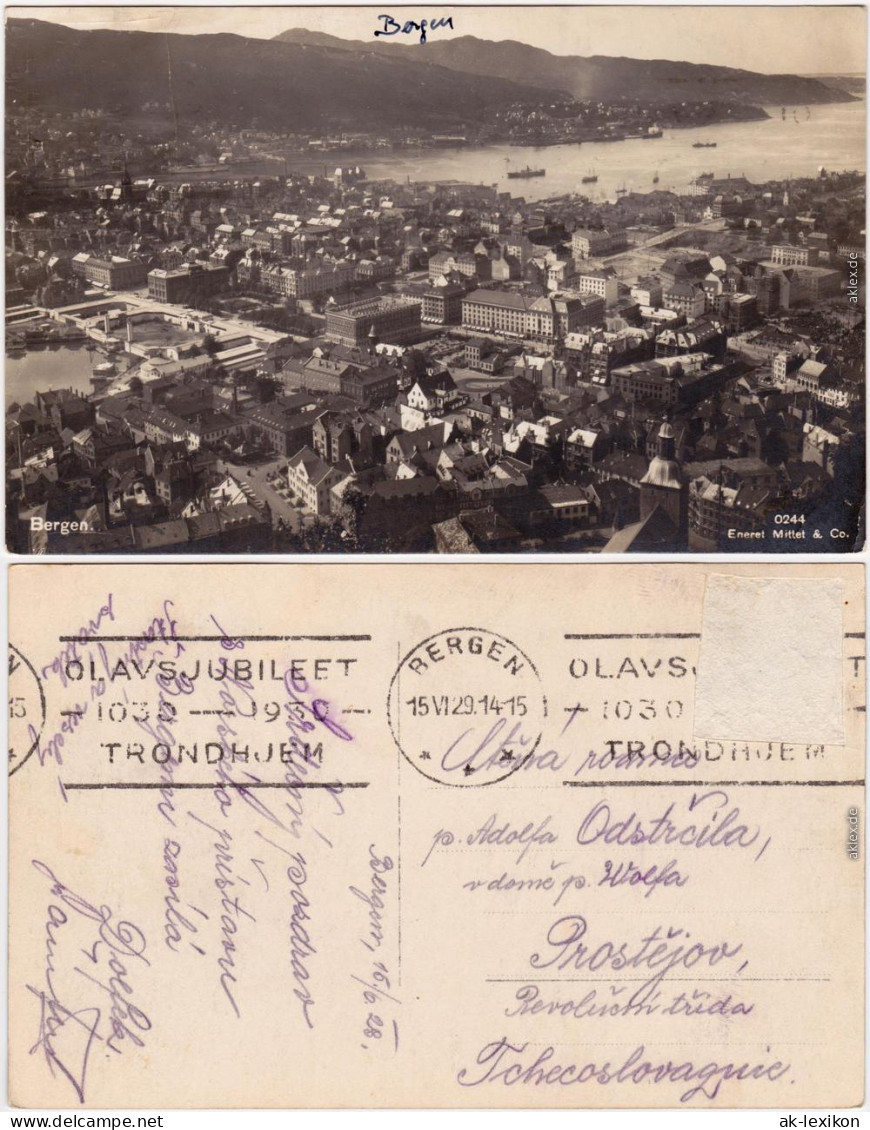 Bergen
Bergen.
0244
Eneret Mittet & Co.
aklex.de
OLAVSJUBILEET
1030 — 1930
TRONDHJEM
BERGEN
15 VI 29.14-15
OLAVSJ
1030
TRONDHJEM
Ctěná rodina
p. Adolfa Odstrčila,
v domě p. Wolfa
Prostějov,
Revoluční třída
Tchecoslovaquie.
Bergen, 15/6 28.
Srdečný pozdrav
z Norského přístavu
Bergen zasílá
zdravý a veselý
Dolek
aklex.de
ak-lexikon